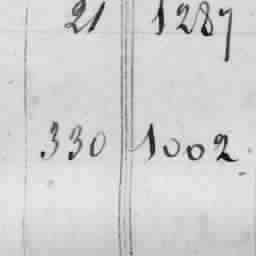 21 1287
330 1002